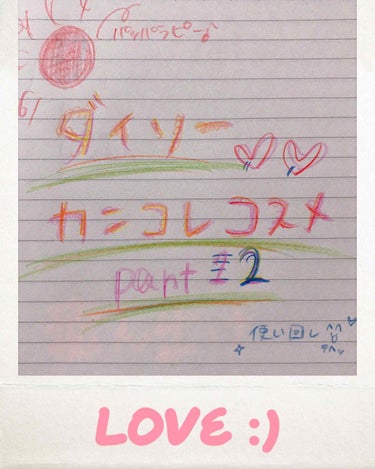 パッパラピー♪
ダイソー♡♡
カンコレコスメ
part #2
使い回し^^
LOVE :)